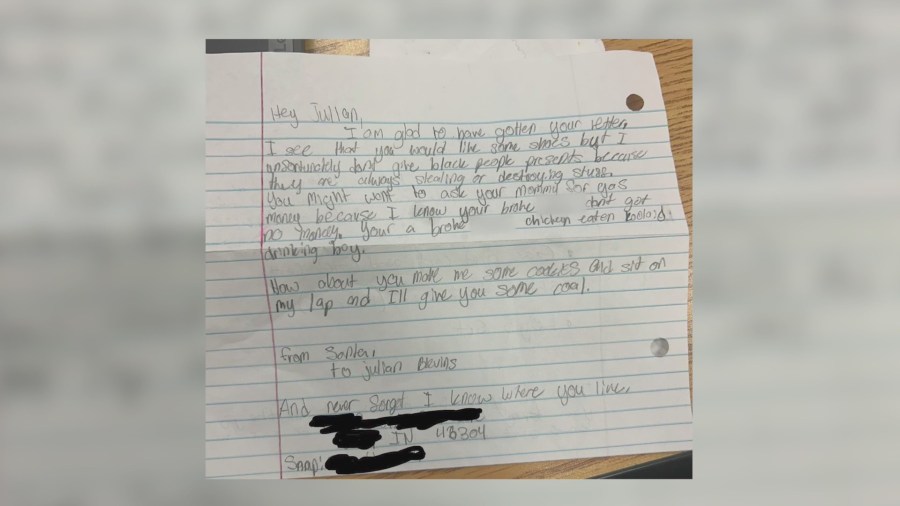 Hey Julian,
I am glad to have gotten your letter,
I see that you would like some shoes but I
unfortunately dont give black people presents because
they are always stealing or destroying stuff.
You might want to ask your mommy for
money because I know your broke dont got
no money. Your a broke chicken eaten koolaid
drinking boy.
How about you make me some cookies and sit on
my lap and I'll give you some coal.
from Santa,
to julian Blevins
And never forget I know where you live.
IN
Snap: